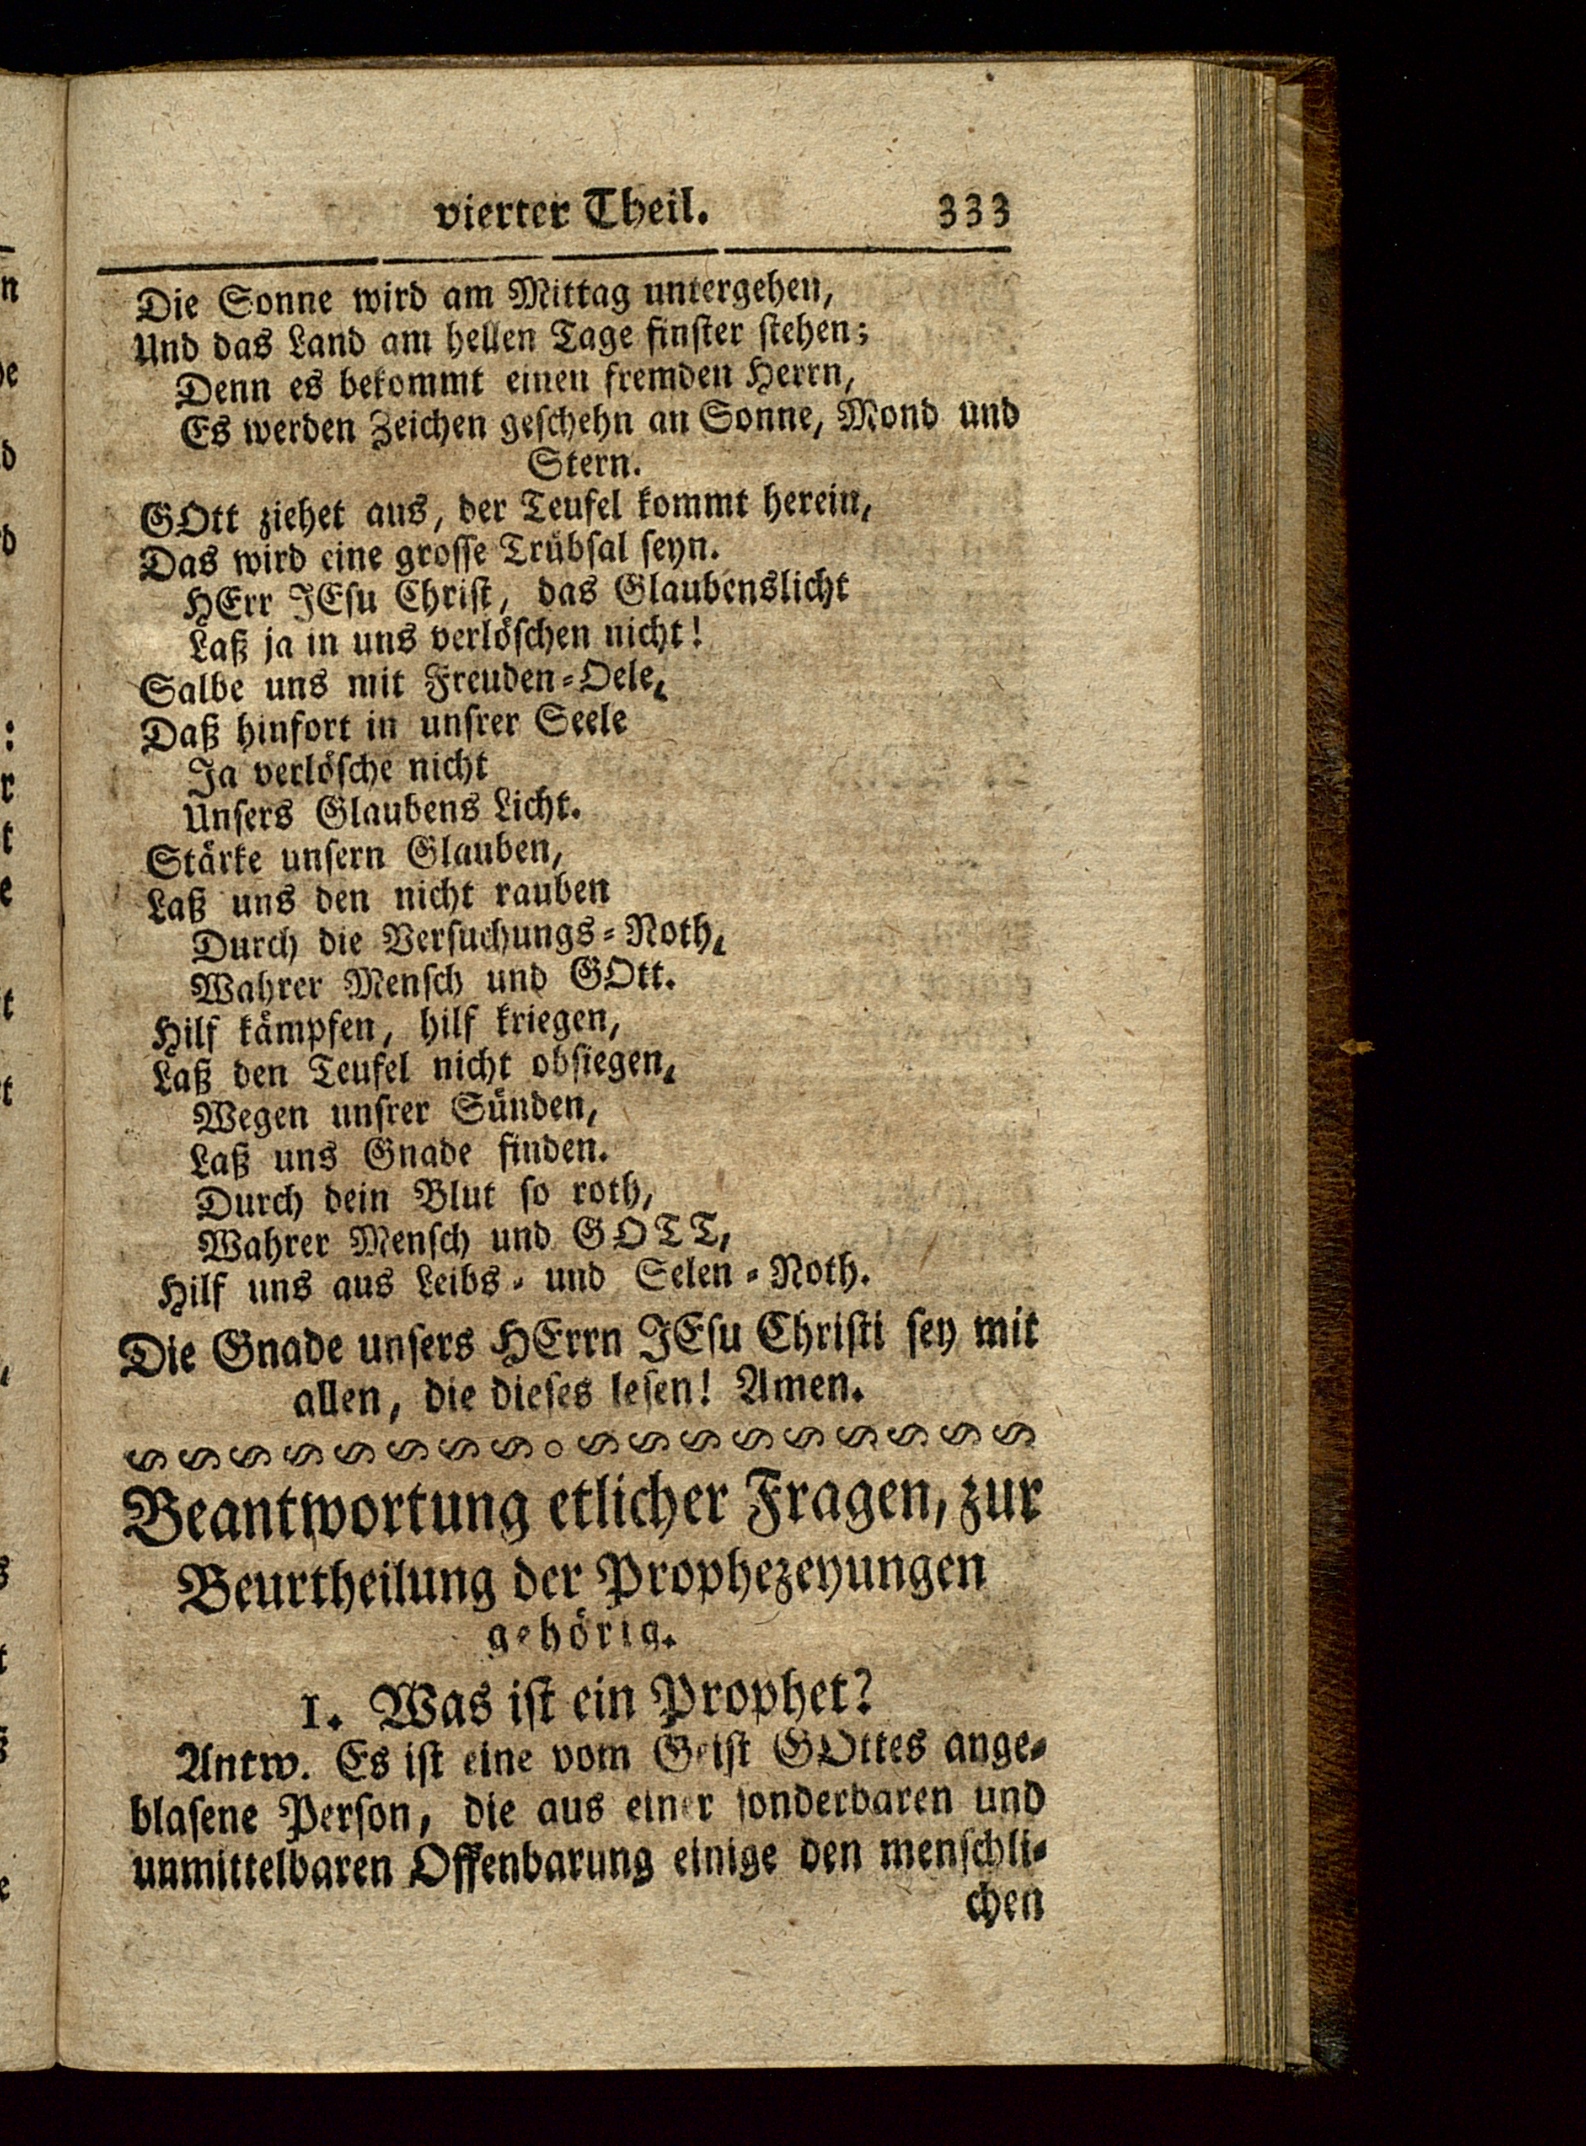 vierter Theil. 333
Die Sonne wird am Mittag untergehen,
Und das Land am hellen Tage finster stehen;
Denn es bekommt einen fremden Herrn,
Es werden Zeichen geschehn an Sonne, Mond und
Stern.
GOtt ziehet aus, der Teufel kommt herein,
Das wird eine grosse Trübsal seyn.
HErr JEsu Christ, das Glaubenslicht
Laß ja in uns verlöschen nicht!
Salbe uns mit Freuden-Oele,
Daß hinfort in unsrer Seele
Ja verlösche nicht
Unsers Glaubens Licht.
Stärke unsern Glauben,
Laß uns den nicht rauben
Durch die Versuchungs-Noth,
Wahrer Mensch und GOtt.
Hilf kämpfen, hilf kriegen,
Laß den Teufel nicht obsiegen,
Wegen unsrer Sünden,
Laß uns Gnade finden.
Durch dein Blut so roth,
Wahrer Mensch und GOTT,
Hilf uns aus Leibs- und Selen-Noth.
Die Gnade unsers HErrn JEsu Christi sey mit
allen, die dieses lesen! Amen.
Beantwortung etlicher Fragen, zur
Beurtheilung der Prophezeyungen
gehörig.
1. Was ist ein Prophet?
Antw. Es ist eine vom Geist GOttes ange-
blasene Person, die aus einer sonderbaren und
unmittelbaren Offenbarung einige den menschli-
chen